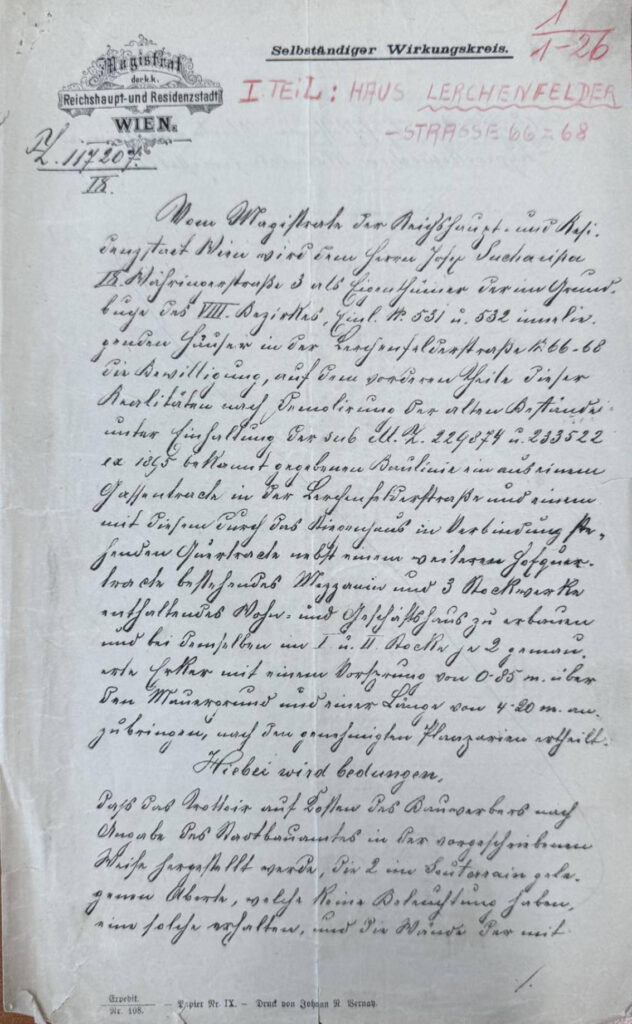 Selbständiger Wirkungskreis.
1/1-26
Magistrat
der k.k.
Reichshaupt- und Residenzstadt
WIEN.
I. TEIL: HAUS LERCHENFELDER
-STRASSE 66=68
Z. 117207.
IX.
Vom Magistrate der Reichshaupt- und Resi-
denzstadt Wien wird dem Herrn Josef
IX. Währingerstraße 3 als Eigenthümer der im Grund-
buche des VIII. Bezirkes, Einl. N: 531 u. 532 innelie-
genden Häuser in der Lerchenfelderstraße N: 66-68
die Bewilligung, auf dem vorderen Theile dieser
Realitäten nach Demolirung der alten Bestände
unter Einhaltung der sub M. Z. 229874 u. 233522
ex 1895 bekannt gegebenen Baulinie ein aus einem
Gassentracte in der Lerchenfelderstraße und einem
mit diesem durch das Stiegenhaus in Verbindung ste-
henden Quertracte nebst einem weiteren Hofquer-
tracte bestehendes Mezzanin und 3 Stockwerke
enthaltendes Wohn- und Geschäftshaus zu erbauen
und bei demselben im I u. II Stocke je 2 gemau-
erte Erker mit einem Vorsprung von 0·85 m. über
den Mauergrund und einer Länge von 4·20 m. an-
zubringen, nach den genehmigten Planparien ertheilt.
Hiebei wird bedungen,
daß das Trottoir auf Kosten des Bauwerbers nach
Angabe des Stadtbauamtes in der vorgeschriebenen
Weise hergestellt werde, die 2 im Souterrain gele-
genen Aborte, welche keine Beleuchtung haben,
eine solche erhalten, und die Wände der mit
./.
Expedit.
Nr. 108.
— Papier Nr. IX. — Druck von Johann N. Vernay.